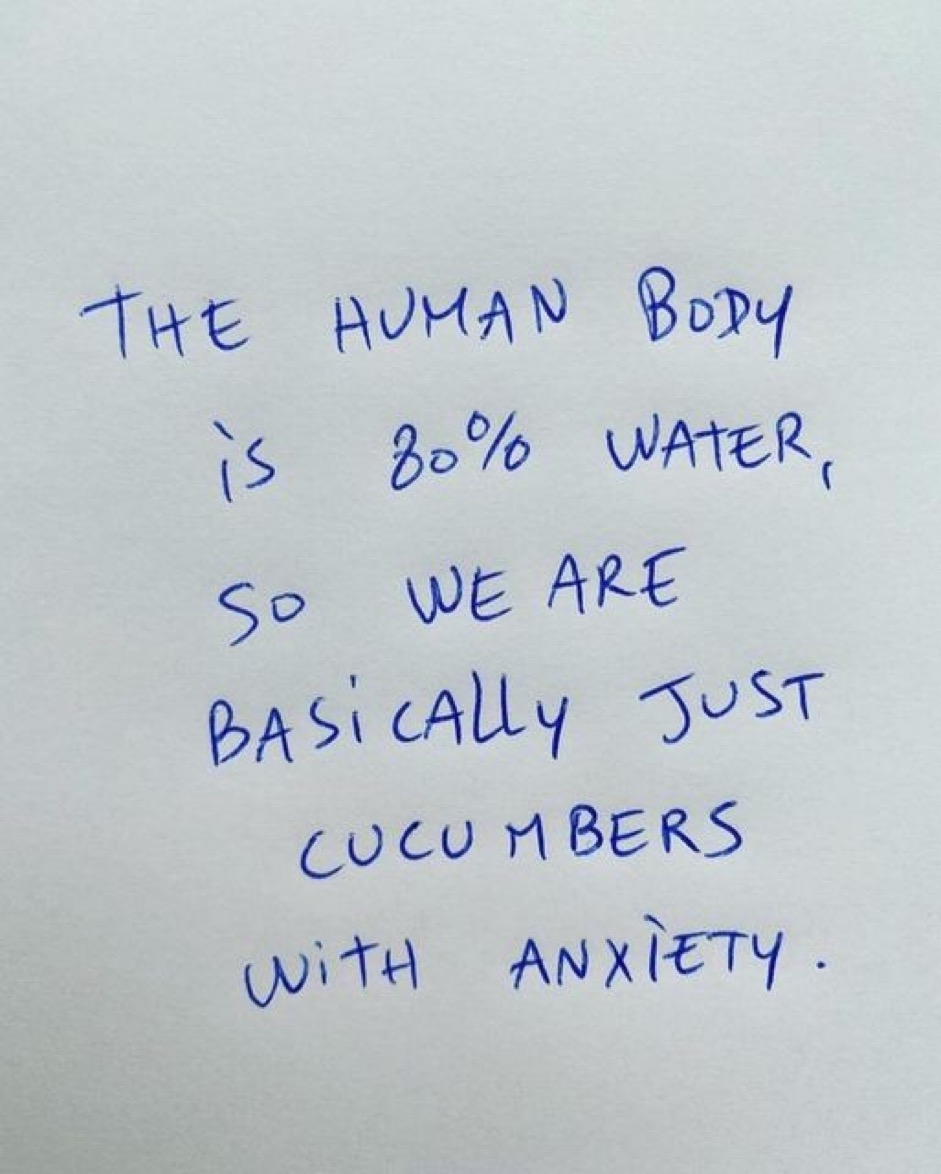 THE HUMAN BODY
is 80% WATER,
SO WE ARE
BASiCAlly JUST
CUCUMBERS
WiTH ANXiETY.